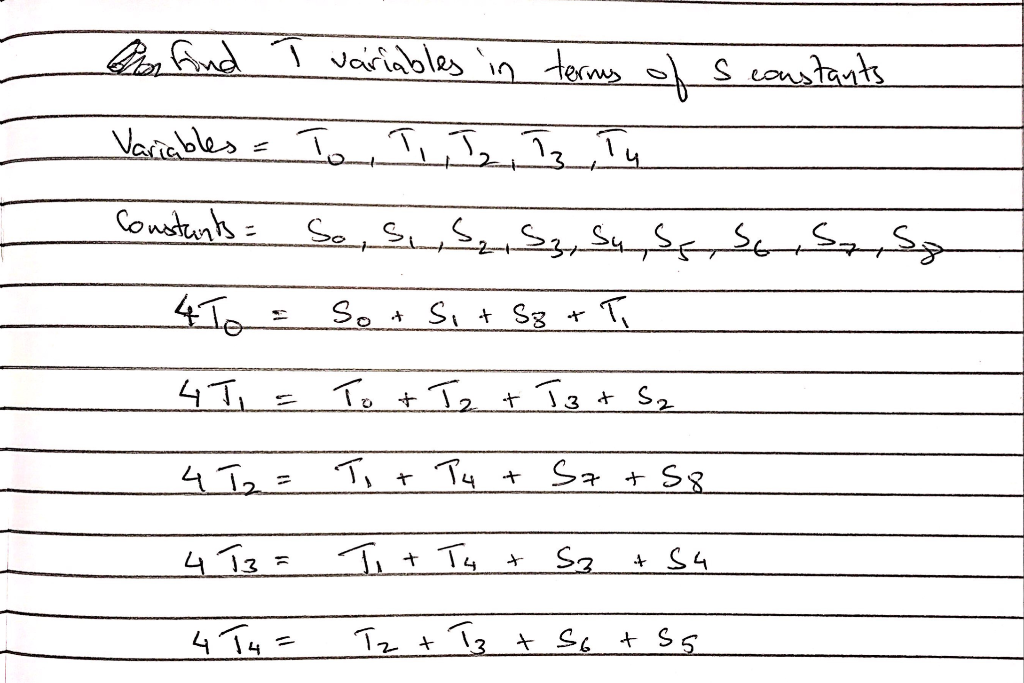 find T variables in terms of S constants
Variables = T₀, T₁, T₂, T₃, T₄
Constants = S₀, S₁, S₂, S₃, S₄, S₅, S₆, S₇, S₈
4T₀ = S₀ + S₁ + S₈ + T₁
4T₁ = T₀ + T₂ + T₃ + S₂
4T₂ = T₁ + T₄ + S₇ + S₈
4T₃ = T₁ + T₄ + S₃ + S₄
4T₄ = T₂ + T₃ + S₆ + S₅